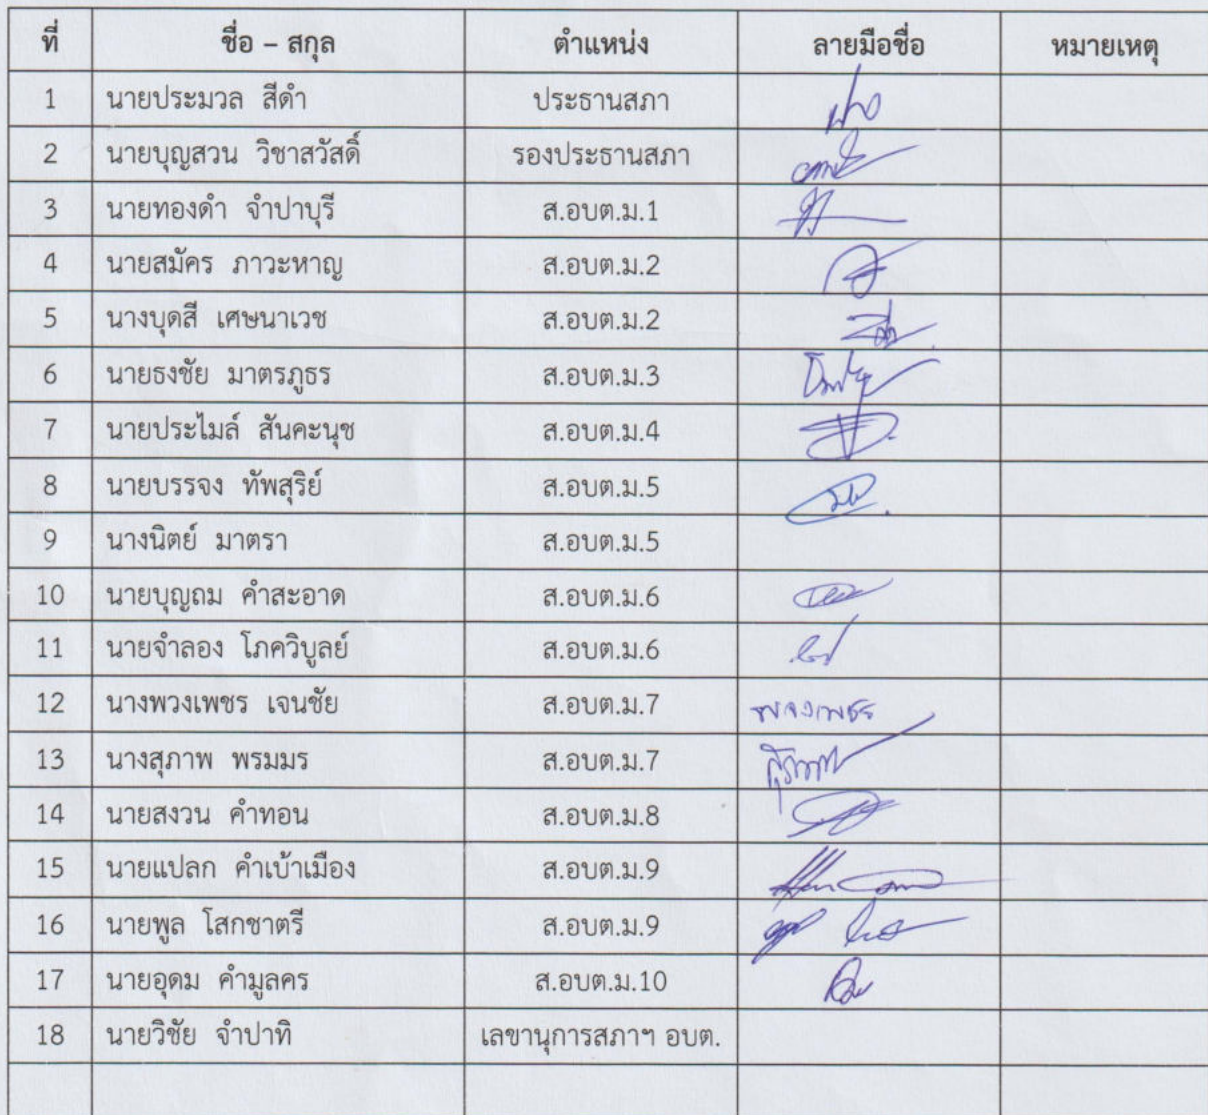 ที่ ชื่อ – สกุล ตำแหน่ง ลายมือชื่อ หมายเหตุ
1 นายประมวล สีดำ ประธานสภา
2 นายบุญสวน วิชาสวัสดิ์ รองประธานสภา
3 นายทองดำ จำปาบุรี ส.อบต.ม.1
4 นายสมัคร ภาวะหาญ ส.อบต.ม.2
5 นางบุดสี เศษนาเวช ส.อบต.ม.2
6 นายธงชัย มาตรภูธร ส.อบต.ม.3
7 นายประไมล์ สันคะนุช ส.อบต.ม.4
8 นายบรรจง ทัพสุริย์ ส.อบต.ม.5
9 นางนิตย์ มาตรา ส.อบต.ม.5
10 นายบุญถม คำสะอาด ส.อบต.ม.6
11 นายจำลอง โภควิบูลย์ ส.อบต.ม.6
12 นางพวงเพชร เจนชัย ส.อบต.ม.7 พวงเพชร
13 นางสุภาพ พรมมร ส.อบต.ม.7
14 นายสงวน คำทอน ส.อบต.ม.8
15 นายแปลก คำเบ้าเมือง ส.อบต.ม.9
16 นายพูล โสกชาตรี ส.อบต.ม.9
17 นายอุดม คำมูลคร ส.อบต.ม.10
18 นายวิชัย จำปาทิ เลขานุการสภาฯ อบต.